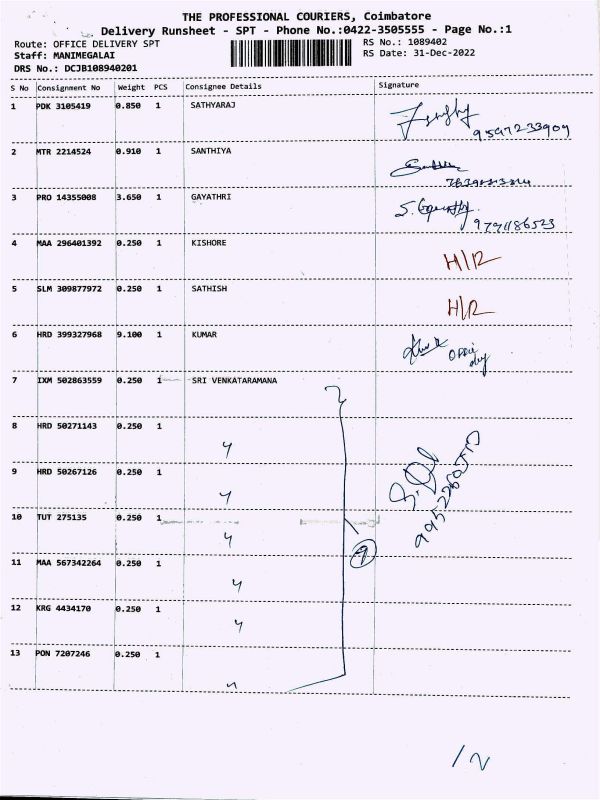 THE PROFESSIONAL COURIERS, Coimbatore
Delivery Runsheet - SPT - Phone No.:0422-3505555 - Page No.:1
Route: OFFICE DELIVERY SPT RS No.: 1089402
Staff: MANIMEGALAI RS Date: 31-Dec-2022
DRS No.: DCJB108940201
S No Consignment No Weight PCS Consignee Details Signature
1 PDK 3105419 0.850 1 SATHYARAJ
9597233909
2 MTR 2214524 0.910 1 SANTHIYA
3 PRO 14355008 3.650 1 GAYATHRI
9791186523
4 MAA 296401392 0.250 1 KISHORE H/R
5 SLM 309877972 0.250 1 SATHISH H/R
6 HRD 399327968 9.100 1 KUMAR
7 IXM 502863559 0.250 1 SRI VENKATARAMANA
8 HRD 50271143 0.250 1
9 HRD 50267126 0.250 1
10 TUT 275135 0.250 1
11 MAA 567342264 0.250 1
12 KRG 4434170 0.250 1
13 PON 7207246 0.250 1